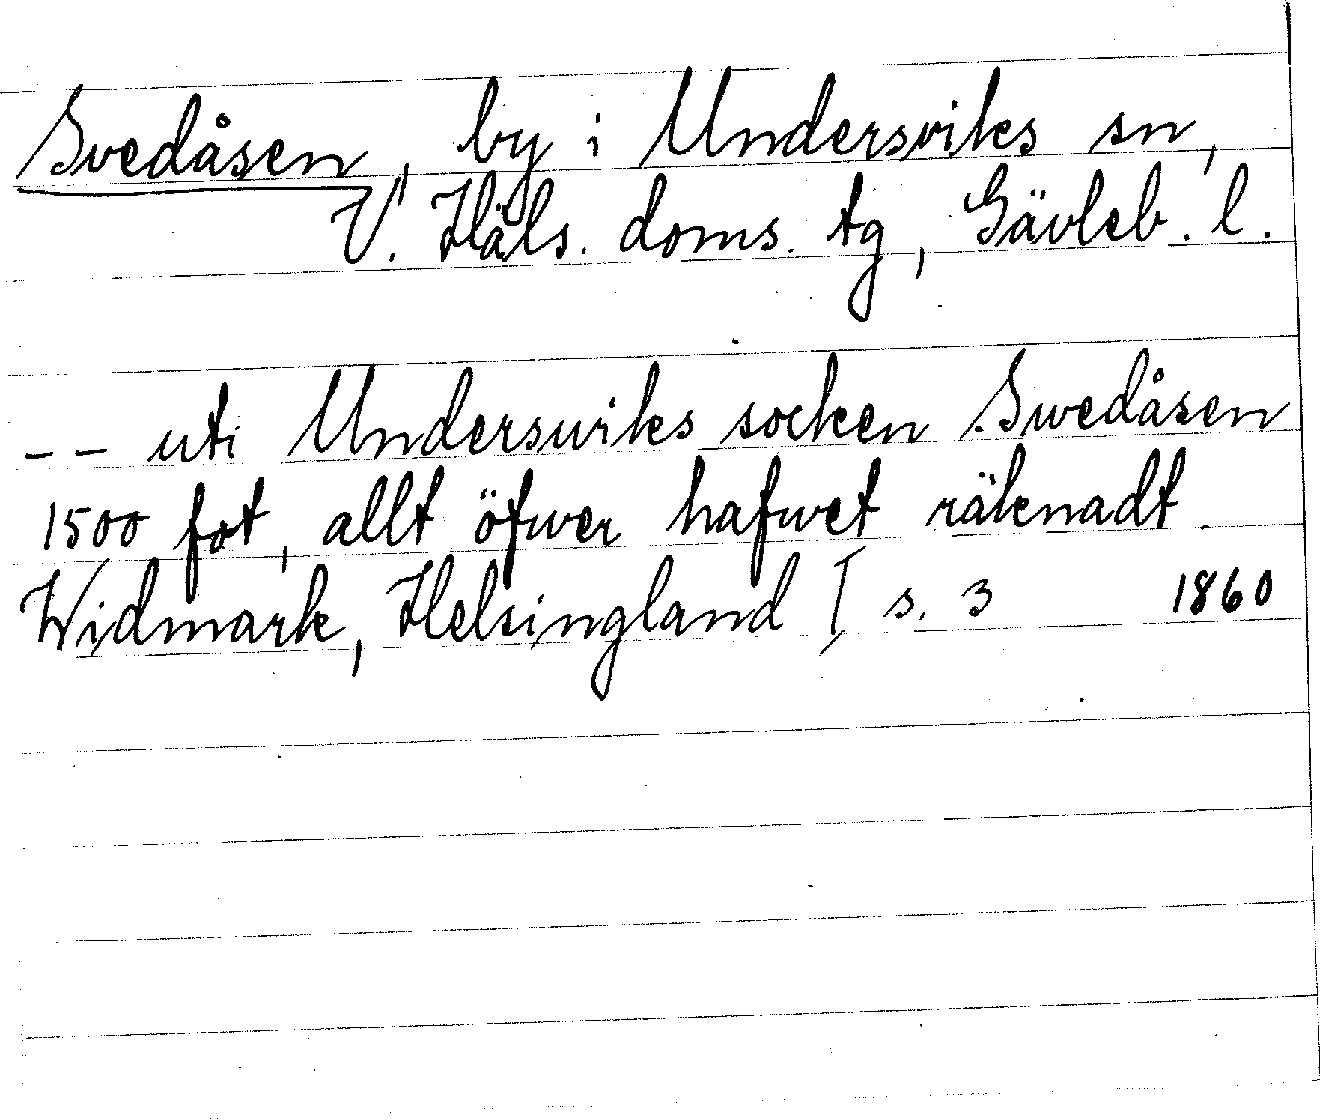 Svedåsen, by i Undersviks sn,
V. Häls. doms. tg, Gävleb. l.
-- uti Underswiks socken Swedåsen
1500 fot, allt öfwer hafwet räknadt.
Widmark, Helsingland I s. 3 1860